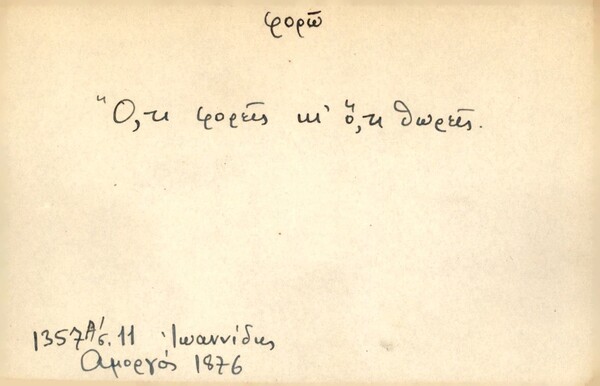 φορῶ
Ὅ,τι φορεῖς κι' ὅ,τι θωρεῖς.
1357 Α΄ σ. 11 Ἰωαννίδης
Αμοργός 1876